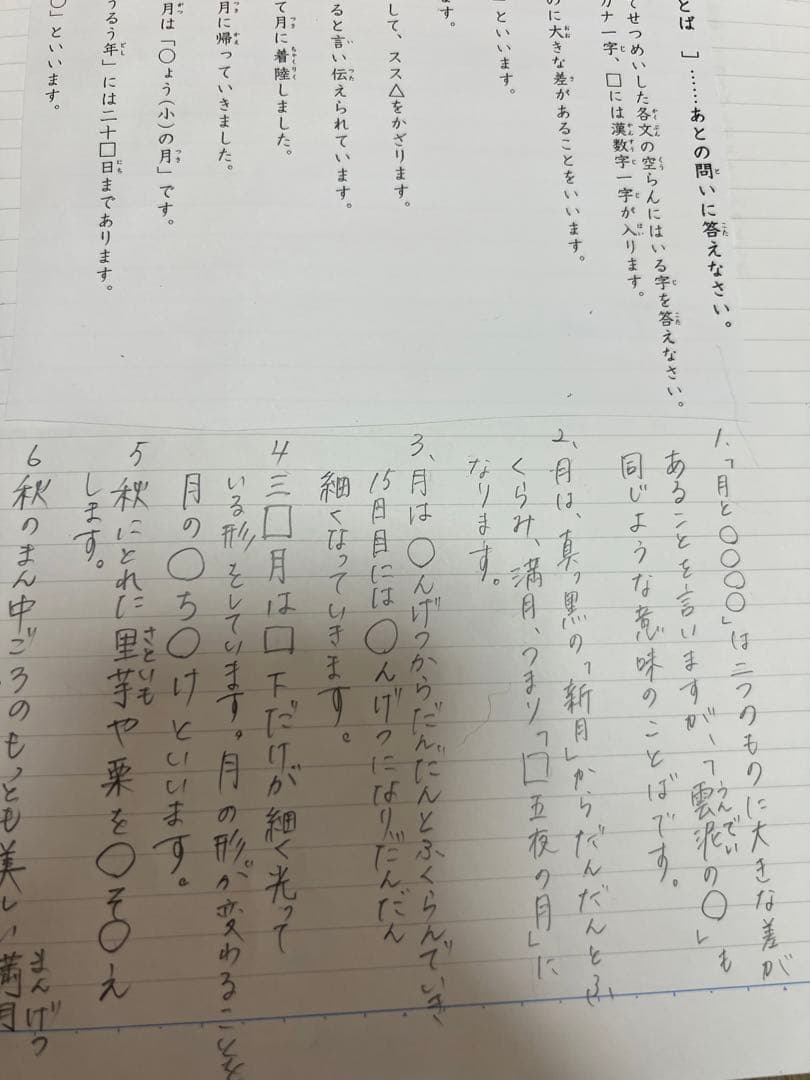 とば 〔 〕……あとの問いに答えなさい。
てせつめいした各文の空らんにはいる字を答えなさい。
カナ一字、□には漢数字一字が入ります。
のに大きな差があることをいいます。
といいます。
ます。
して、スス△をかざります。
ると言い伝えられています。
て月に着陸しました。
月に帰っていきました。
月は「○ょう(小)の月」です。
うるう年」には二十□日まであります。
○」といいます。
1、「月と○○○○」は二つのものに大きな差が
あることを言いますが、「雲泥の○」も
同じような意味のことばです。
2、月は、真っ黒の「新月」からだんだんとふ
くらみ、満月、つまり「□五夜の月」に
なります。
3、月は○んげつからだんだんとふくらんでいき
15日目には○んげつになりだんだん
細くなっていきます。
4 三□月は□下だけが細く光って
いる形をしています。月の形が変わることを
月の○ち○けといいます。
5 秋にとれた里芋や栗を○そ○え
します。
6 秋のまん中ごろのもっとも美しい満月